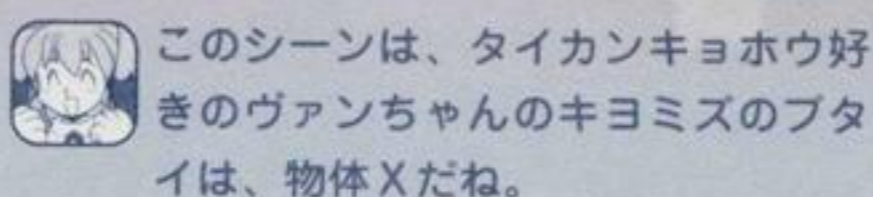 このシーンは、タイカンキョホウ好
きのヴァンちゃんのキヨミズのブタ
イは、物体Xだね。